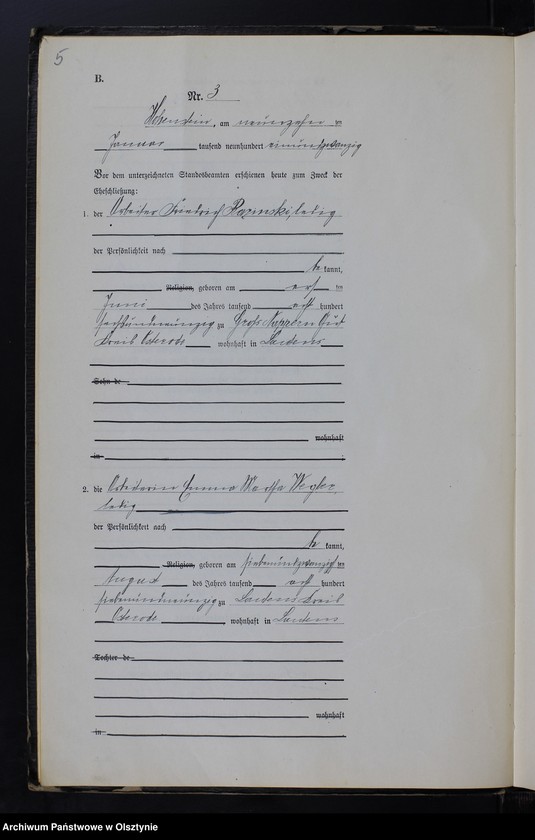 5
B.
Nr. 3
Hohenstein, am neunzehn ten
Januar tausend neunhundert einundzwanzig
Vor dem unterzeichneten Standesbeamten erschienen heute zum Zweck der
Eheschließung:
1. der Arbeiter Friedrich ledig
der Persönlichkeit nach
be kannt,
Religion, geboren am ten
Juni des Jahres tausend acht hundert
sechsundneunzig zu Groß Nappern Gut
Kreis Osterode wohnhaft in
Sohn de
wohnhaft
in
2. die Arbeiterin Emma Martha
ledig
der Persönlichkeit nach
be kannt,
Religion, geboren am siebenundzwanzigsten
August des Jahres tausend acht hundert
siebenundneunzig zu Kreis
Osterode wohnhaft in
Tochter de
wohnhaft
in
Archiwum Państwowe w Olsztynie